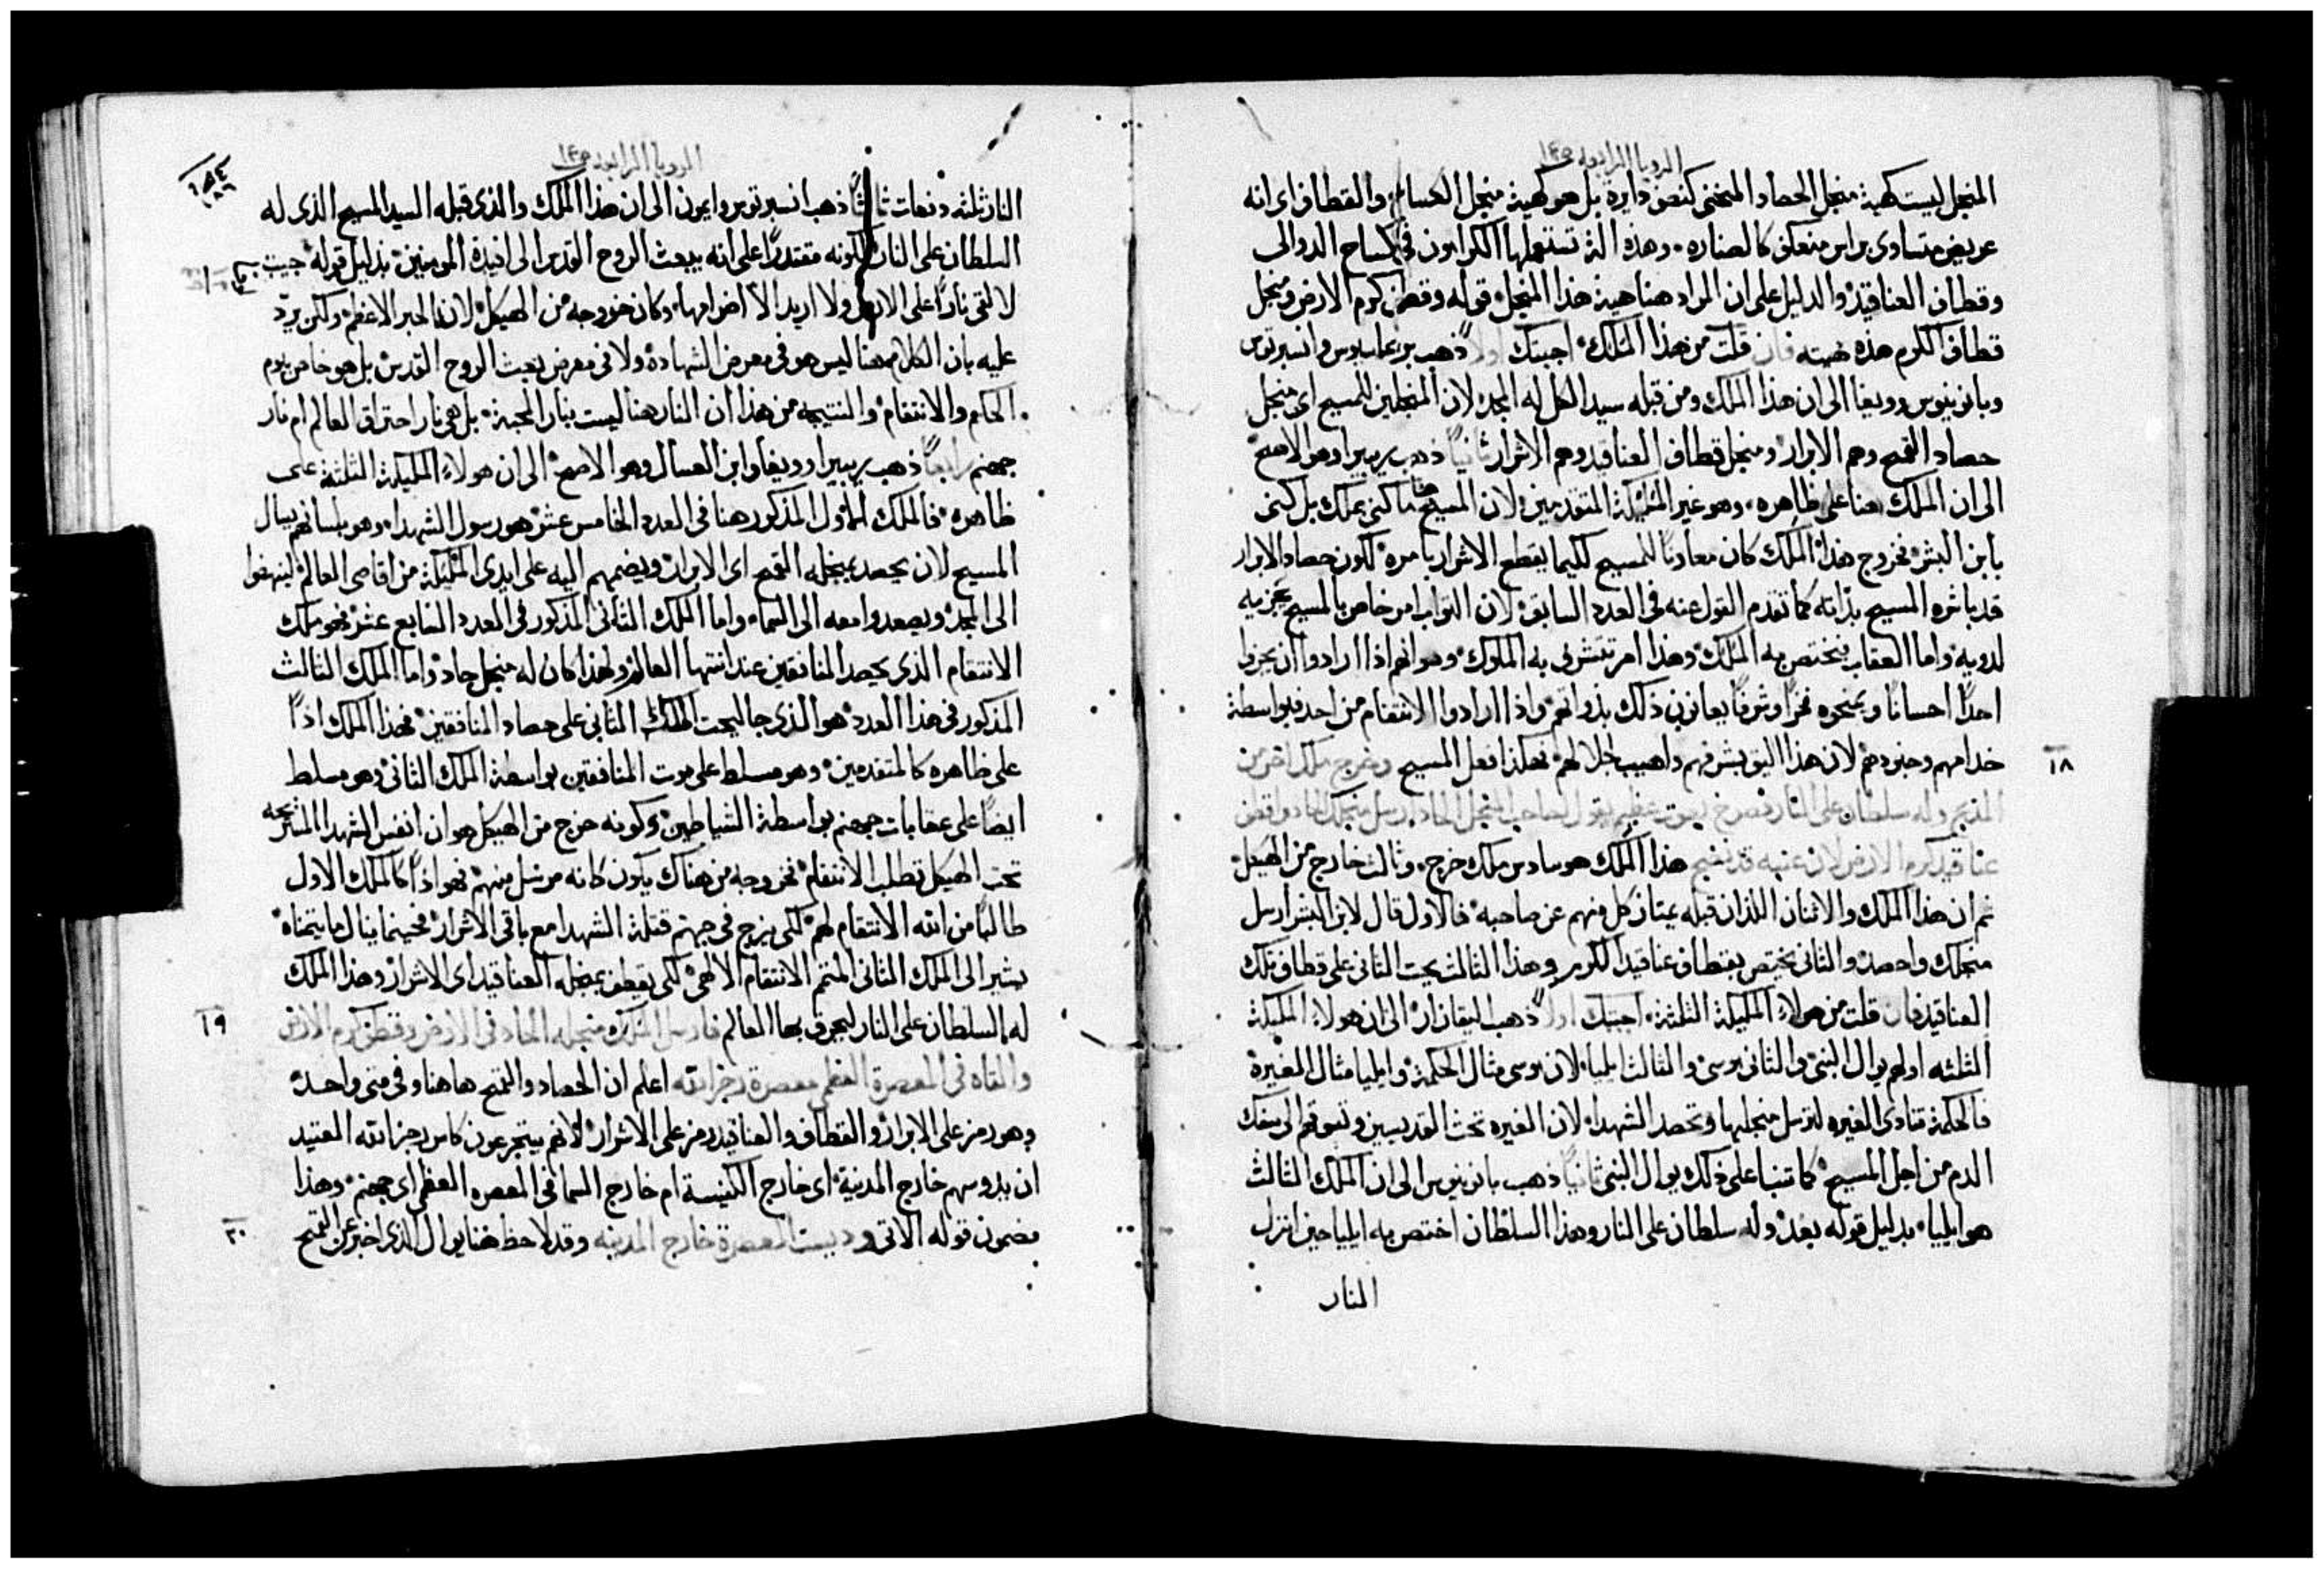 الرويا الرابعه ١٤٥
المنجل ليست كهية منجل الحصاد المنحنى كنصف دايرة بل هو كهية منجل الكسام والقطاف اى انه
عريض متساوى براس منعكف كالصناره وهذه الة تستعملها الكرامون فى كساح الدوالى
وقطاف العناقيد والدليل على ان المراد هنا هية هذا المنجل قوله وقطف كرم الارض ومنجل
قطاف الكرم هذه هيته فان قلت من هذا الملك اجبتك اولاً ذهب وانسبرتوس
وبانونيوس ورويفا الى ان هذا الملك ومن قبله سيد الكل له المجد لان المنجلين للمسيح اى منجل
حصاد القمح وهم الابرار ومنجل قطاف العناقيد وهم الاشرار ثانياً ذهب بريبيرا وهو الاصح
الى ان الملك هنا على ظاهره وهو غير المليكة المتقدمين لان المسيح هنا ما كنى بملك بل كنى
بابن البشر فخروج هذا الملك كان معاوناً للمسيح لكيما يقطع الاشرار بامره لكون حصاد الابرار
قد باشره المسيح بذاته كما تقدم القول عنه فى العدد السابق لان الثواب امر خاص بالمسيح يجزيه
لذويه واما العقاب فيختص به الملك وهذا امر تتشرف به الملوك وهو انهم اذا ارادوا ان يجزوا
احداً احساناً ويمنحوه فخراً وشرفاً يعانون ذلك بذواتهم واذا ارادوا الانتقام من احد فبواسطة
خدامهم وجنودهم لان هذا اليق بشرفهم واهيب لجلالهم فهكذا فعل المسيح وخرج ملك اخر من
١٨
المذبح وله سلطان على النار فصرخ بصوت عظيم يقول لصاحب المنجل الحاد ارسل منجلك الحاد واقطف
عناقيد كرم الارض لان عنبه قد نضج هذا الملك هو سادس ملك خرج وثالث خارج من الهيكل
ثم ان هذا الملك والاثنان اللذان قبله يمتاز كل منهم عن صاحبه فالاول قال لابن البشر ارسل
منجلك واحصد والثانى يختص بقطاف عناقيد الكرم وهذا الثالث يحث الثانى على قطاف تلك
العناقيد فان قلت من هولاء المليكة الثلثة اجبتك اولاً ذهب اليقازار الى ان هولاء المليكة
الثلثه اولهم يوال النبى والثانى موسى والثالث ايليا لان موسى مثال الحكمة وايليا مثال الغيرة
فالحكمة تنادى الغيره لترسل منجلها وتحصد الشهدا لان الغيره تحث القديسين وتسوقهم الى سفك
الدم من اجل المسيح كما تنبا على ذلك يوال النبى ثانياً ذهب بانونيوس الى ان الملك الثالث
هو ايليا بدليل قوله بعد وله سلطان على النار وهذا السلطان اختص به ايليا حين انزل
النار
الرويا الرابعه ١٤٥
النار ثلثه دفعات ثالثاً ذهب انسبرتوس وايمون الى ان هذا الملك والذى قبله السيد المسيح الذى له
السلطان على النار لكونه مقتدراً على انه يبعث الروح القدس الى افيدة المومنين بدليل قوله جيت
لالقى ناراً على الارض ولا اريد الا اضرامها وكان خروجه من الهيكل لانه الحبر الاعظم ولكن يرد
عليه بان الكلام هنا ليس هو فى معرض الشهادة ولا فى معرض بعث الروح القدس بل هو خاص بيوم
الحكم والانتقام والنتيجه من هذا ان النار هنا ليست بنار المحبة بل هى نار احتراق العالم ام نار
جهنم رابعاً ذهب بريبيرا ورويفا وابن العسال وهو الاصح الى ان هولاء المليكة الثلثة على
ظاهره فالملك الاول المذكور هنا فى العدد الخامس عشر هو رسول الشهدا وهو بلسانهم يسال
المسيح لان يحصد بمنجله القمح اى الابرار ويضمهم اليه على ايدى المليكة من اقاصى العالم لينهضوا
الى المجد ويصعدوا معه الى السما واما الملك الثانى المذكور فى العدد السابع عشر فهو ملك
الانتقام الذى يحصد المنافقين عند انتها العالم ولهذا كان له منجل حاد واما الملك الثالث
المذكور فى هذا العدد هو الذى جا ليحث الملك الثانى على حصاد المنافقين فهذا الملك اذاً
على ظاهره كالمتقدمين وهو مسلط على موت المنافقين بواسطة الملك الثانى وهو مسلط
ايضاً على عقابات جهنم بواسطة الشياطين وكونه خرج من الهيكل هو ان انفس الشهدا
تحت الهيكل تطلب الانتقام فخروجه من هناك يكون كانه مرسل منهم فهو اذاً كالملك الاول
طالباً من الله الانتقام لهم لكى يزج فى جهنم قتلة الشهدا مع باقى الاشرار فحينما ينال ما يتمناه
يشير الى الملك الثانى المتمم الانتقام الالهى لكى يقطف بمنجله العناقيد اى الاشرار وهذا الملك
له السلطان على النار ليحرق بها العالم فارسل الملك منجله الحاد فى الارض وقطف كرم الارض
١٩
والقاه فى المعصرة العظمى معصرة رجز الله اعلم ان الحصاد والقمح هاهنا وفى متى واحد
وهو رمز على الابرار والقطاف والعناقيد رمز على الاشرار لانهم يتجرعون كاس رجز الله العتيد
ان يدوسهم خارج المدينة اى خارج الكنيسة ام خارج السما فى المعصره العظمى اى جهنم وهذا
مضمون قوله الاتى وديست المعصرة خارج المدينه وقد لاحظ هنا يوال الذى اخبر عن القمح
٢٠